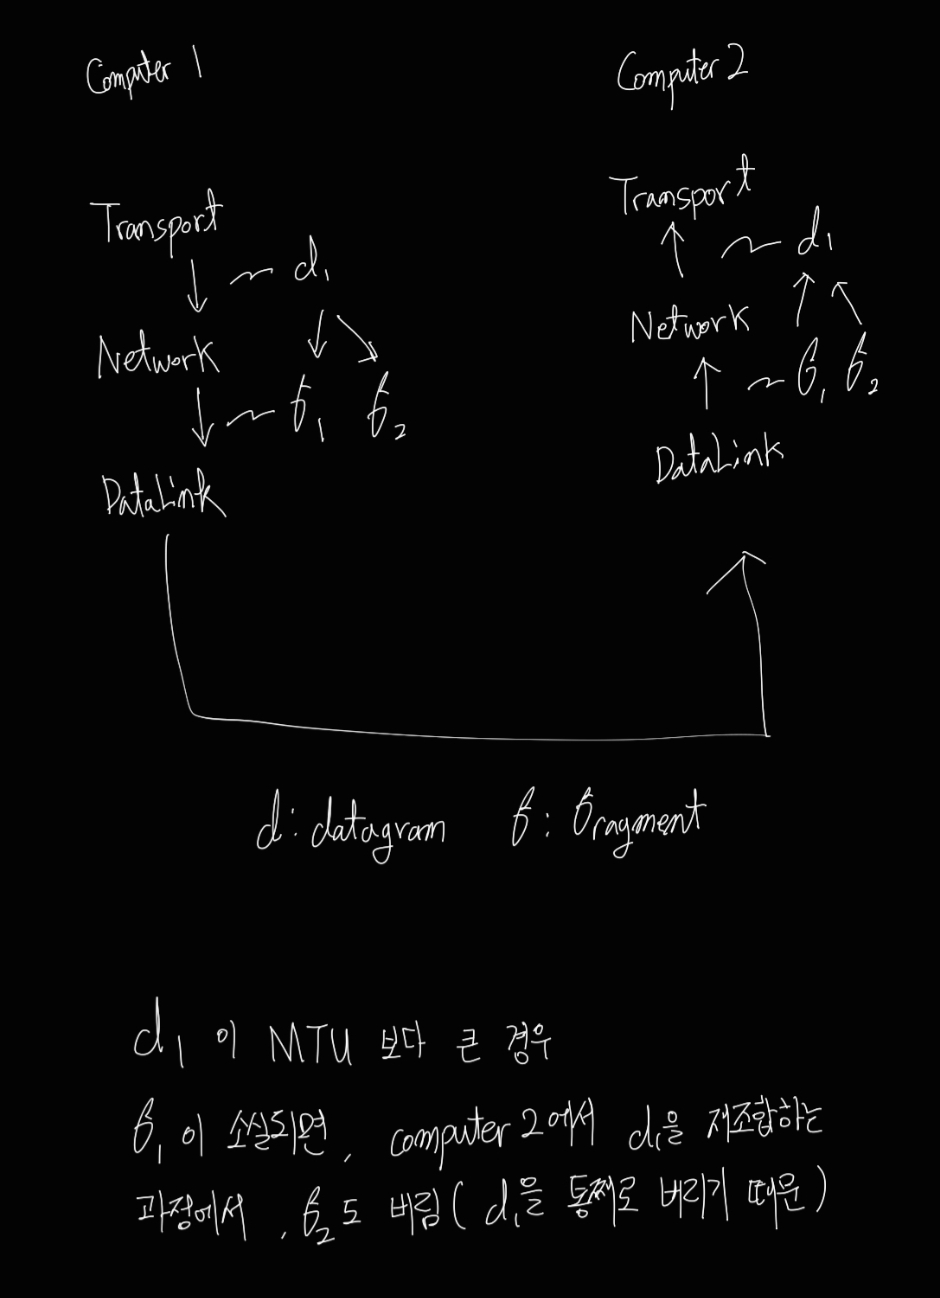 Computer 1
Computer 2
Transport
~ d₁
Network
~ f₁ f₂
DataLink
Transport
~ d₁
Network
~ f₁ f₂
DataLink
d: datagram f: fragment
d₁이 MTU 보다 큰 경우
f₁이 소실되면, computer 2에서 d₁을 재조합하는
과정에서, f₂도 버림 (d₁을 통째로 버리기 때문)